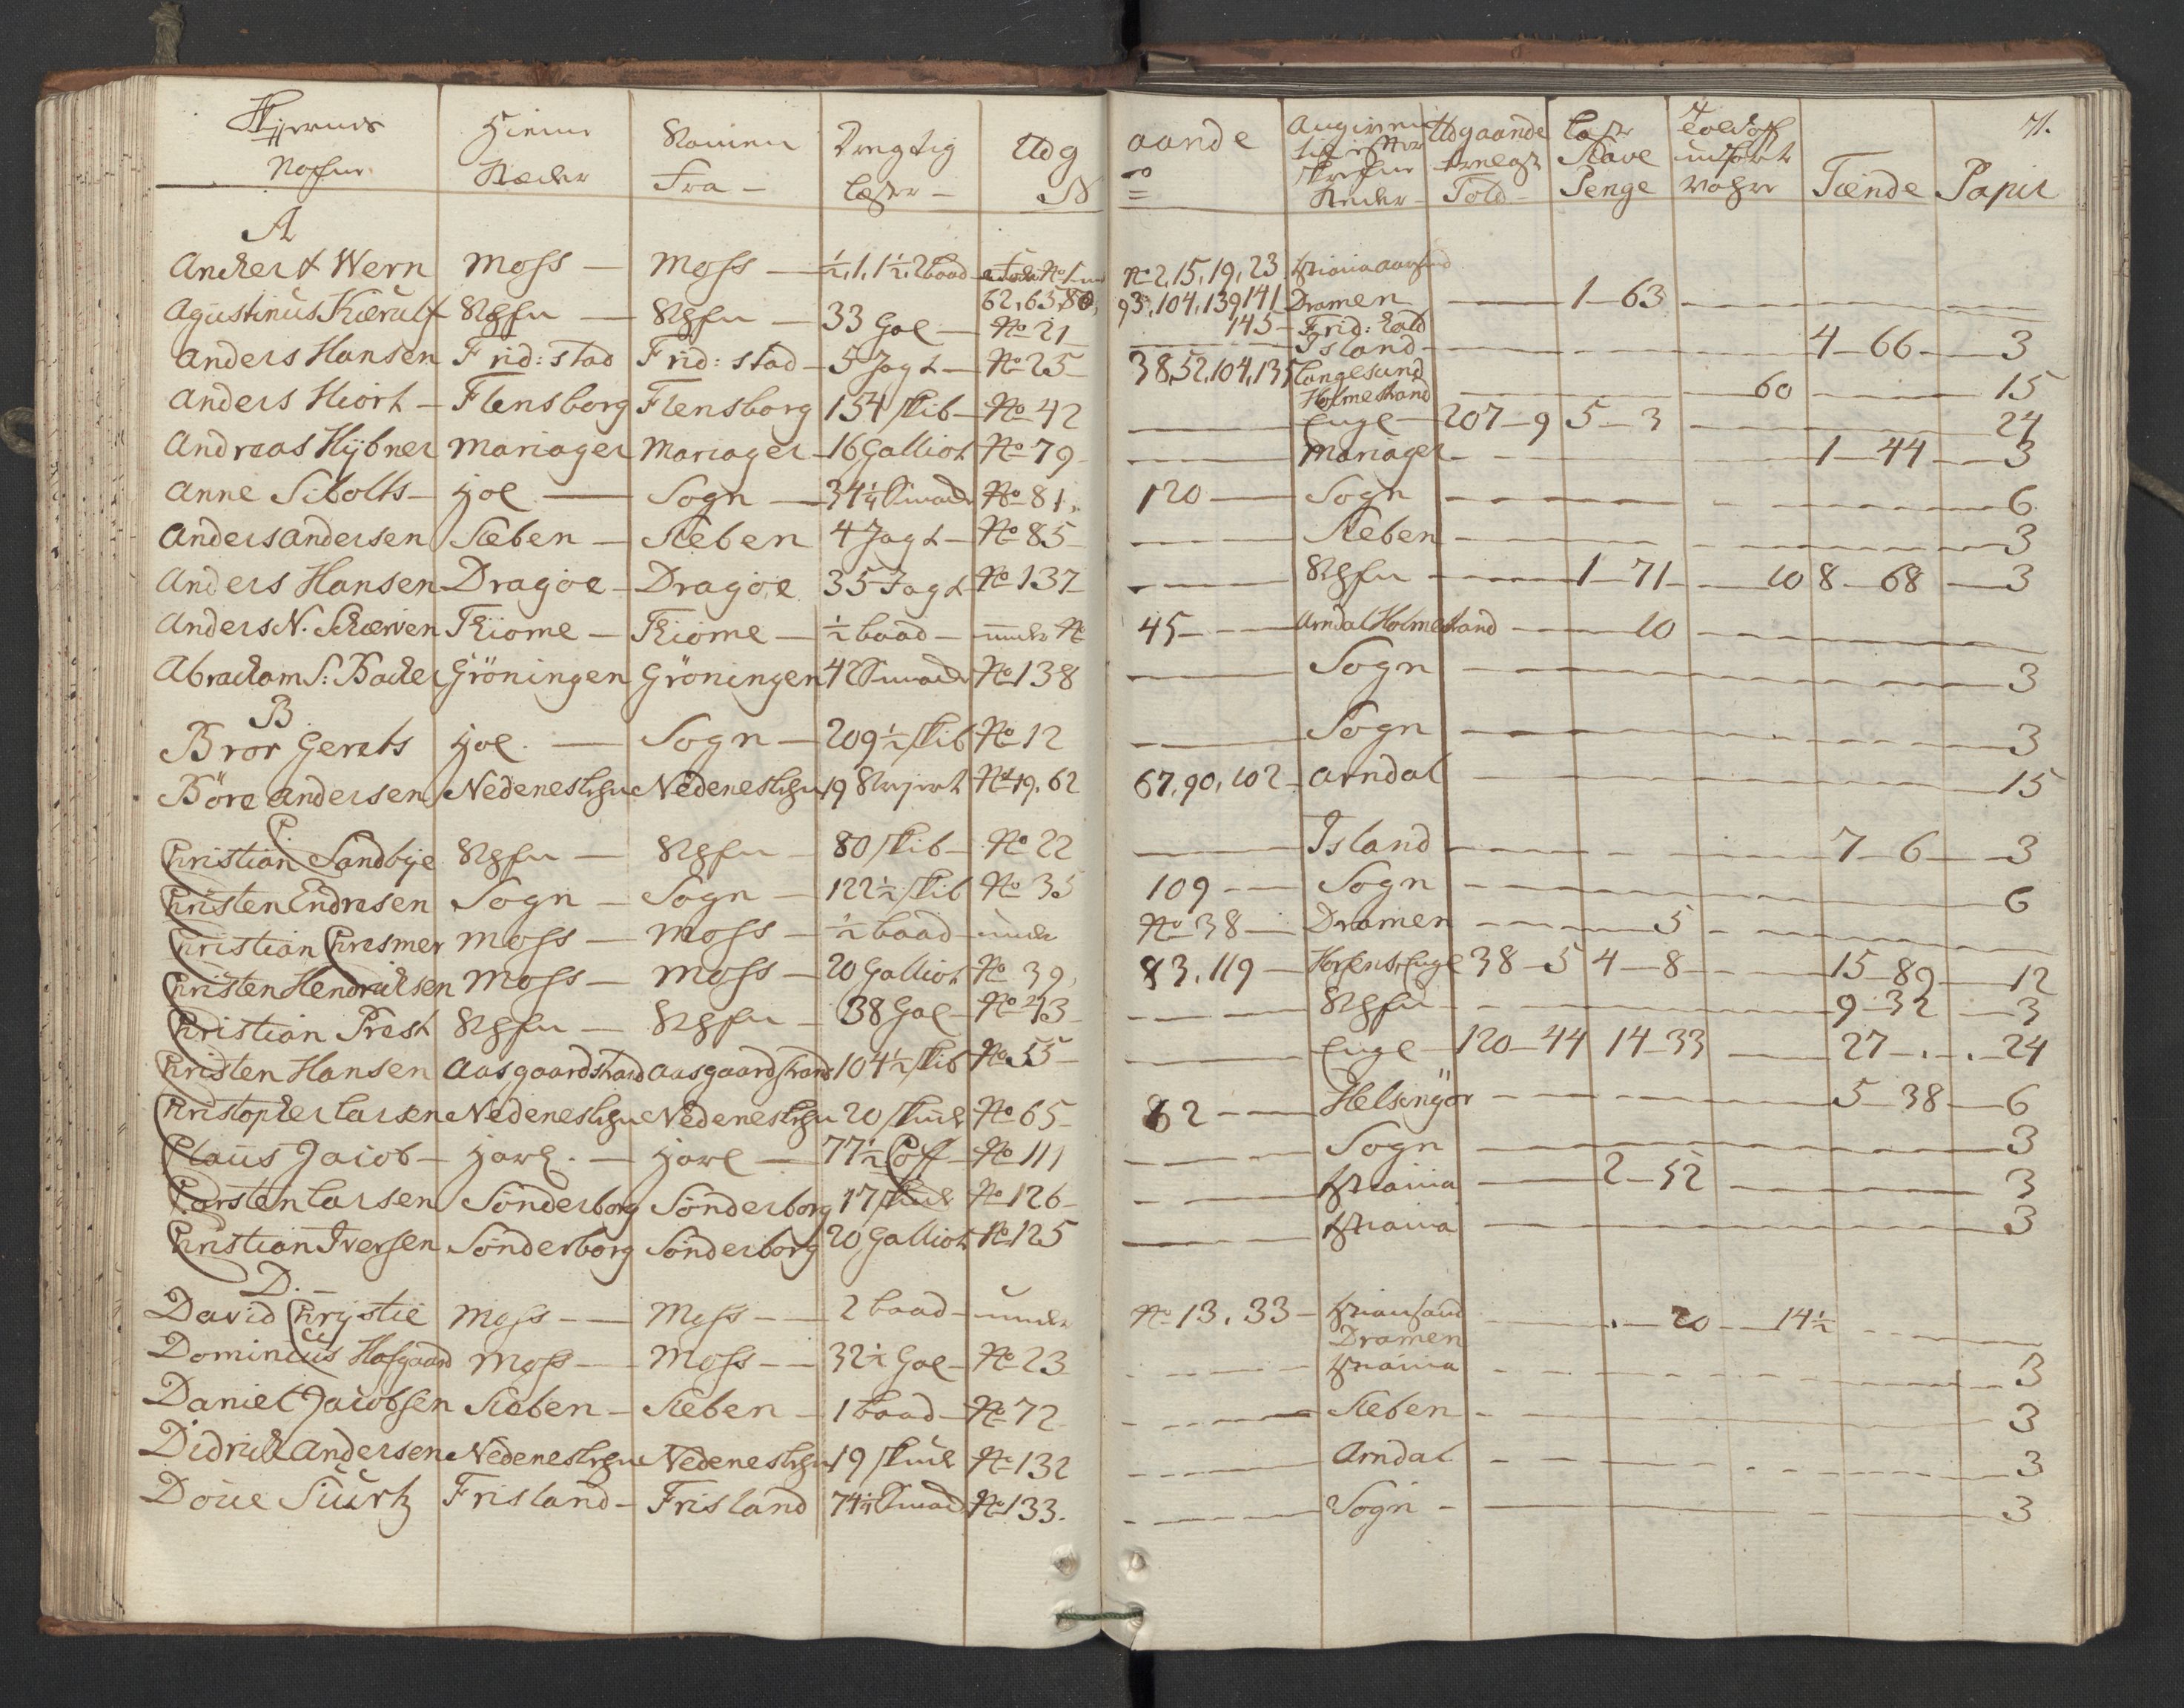 Nafne Hiemme Kommen Drægtig Udg aande Angivne Udgaande Told Penge Tiende Papir 71.
Steder Fra - Læster - N o Steder - Told - Penge
A
Ancher & Wern Moss — Moss — ½, 1, 1½, 2 baad No 2, 15, 19, 23
62, 65, 80, 93, 104, 139, 141 Dramen — 1 — 63
Agustinus Kierulf Khfn — Khfn — 33 Gal — No 21 145 — Frid: hald
Island — 4 — 66 — 3
Anders Hansen Frid: stad Frid: stad — 5 Jagt — No 25 38, 52, 104, 135 Langesund
Holmestrand — 60 — 15
Anders Hiort — Flensborg Flensborg 154 Skib — No 42 — Engl — 207 — 9 5 — 3 — 24
Andreas Hÿbner Mariager Mariager — 16 Galliot No 79 — Mariager — 1 — 44 — 3
Anne Sibolts — Hol — Sogn — 34¼ Smack No 81, 120 — Sogn — 6
Anders Andersen Leben — Leben 4 Jagt — No 85 — Leben — 3
Anders Hansen Dragøe — Dragøe 35 Jagt No 137 — Khfn — 1 — 71 — 10 8 — 68 — 3
Anders N. Schærven Kiøme — Kiøme — ½ baad — under No 45 — Arndal Holmestrand — 10
Abraham S: Backer Gröningen Gröningen 42 Smack No 138 — Sogn — 3
B
Bror Gerats Hol. — Sogn — 209½ Skib No 12 — Sogn — 3
Böre Andersen Nedeneslehn Nedeneslehn 19 No 19, 62 67, 90, 102 — Arndal — 15
C.
Christian Sandbye Khfn — Khfn — 80 Skib — No 22 — Island — 7 — 6 — 3
Christen Endresen Sogn — Sogn — 122½ Skib No 35 109 — Sogn — 6
Christian Chresmer Moss — Moss — ½ baad — under No 38 — Dramen — 5
Christen Hendrichsen Moss — Moss — 20 Galliot No 39, 83, 119 — Horsens, Engl 38 — 5 4 — 8 — 15 — 89 — 12
Christian Prest Khfn — Khfn — 38 Gal — No 43 — Khfn — 9 — 32 — 3
Christen Hansen Aasgaardstrand Aasgaardstrand 104½ Skib No 55 — Engl — 120 — 44 14 — 33 — 27 — . — . — 24
Christopher Larsen Nedeneslehn Nedeneslehn 20 Skude No 65 — 82 — Helsingör — 5 — 38 — 6
Claus Jacob — Harl. — Harl — 77½ Coff — No 111 — Sogn — 3
Carsten Larsen Sönderborg Sönderborg 17 Skude No 126 — Xstiania — 2 — 52 — 3
Christian Iversen Sönderborg Sönderborg 20 Galliot No 125 — Xstiania — 3
D. —
David Chrystie Moss — Moss — 2 baad — under No 13, 33 — Xstiansand
Dramen — 20 — 14½
Dominicus Hofgaard Moss — Moss — 32½ Gal — No 23 — Xstiania — 3
Daniel Jacobsen Leben — Leben — 1 baad — No 72 — Leben — 3
Didrick Andersen Nedeneslehn Nedeneslehn 19 Skude No 132 — Arndal — 3
Doue Siurtz Frisland — Frisland 74¼ Smack No 133. — Sogn — 3